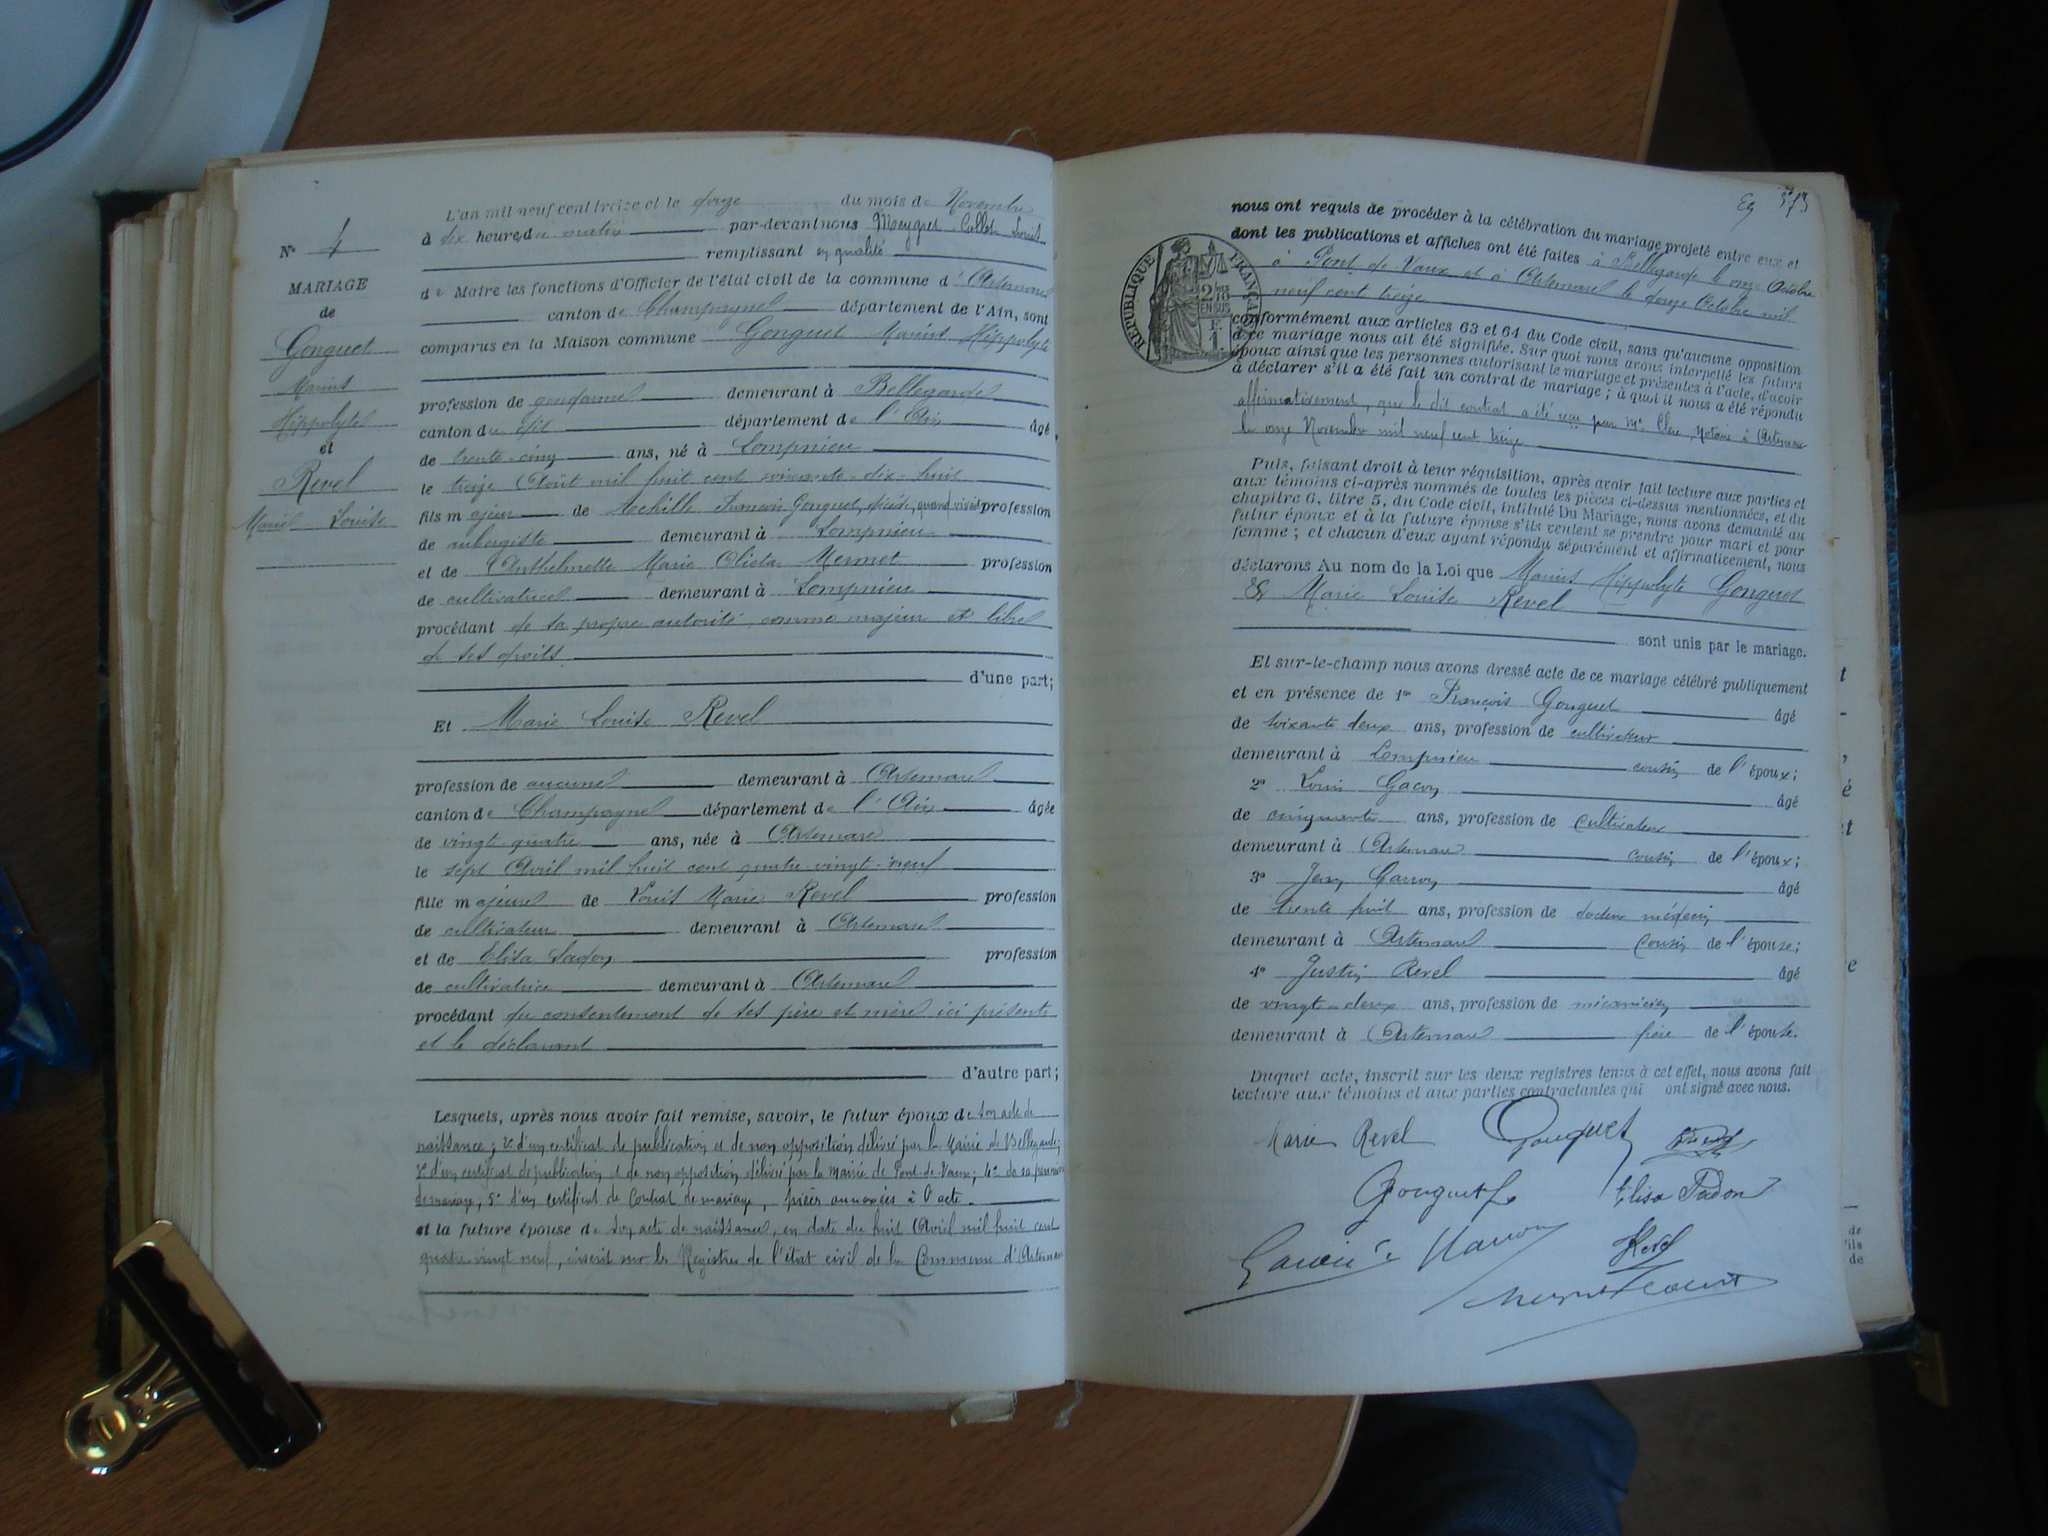 L'an mil neuf cent treize et le douze du mois de Novembre
à dix heures du matin par-devant nous Meygret Collet Louis
remplissant en qualité
de Maire les fonctions d'Officier de l'état civil de la commune d'Artemare
canton de Champagne département de l'Ain, sont
comparus en la Maison commune Gonguet Marius Hippolyte
profession de gendarme demeurant à Bellegarde
canton du dit département de l'Ain âgé
de trente-cinq ans, né à Lompnieu
le treize Août mil huit cent soixante-dix-huit
fils majeur de Achille François Gonguet, décédé, quand vivait profession
de aubergiste demeurant à Lompnieu
et de Anthelmette Marie Mermet profession
de cultivatrice demeurant à Lompnieu
procédant de sa propre autorité comme majeur et libre
de ses droits
d'une part;
Et Marie Louise Revel
profession de aucune demeurant à Artemare
canton de Champagne département de l'Ain âgée
de vingt-quatre ans, née à Artemare
le sept Avril mil huit cent quatre-vingt-neuf
fille majeure de Louis Marie Revel profession
de cultivateur demeurant à Artemare
et de Elisa profession
de cultivatrice demeurant à Artemare
procédant du consentement de ses père et mère ici présents
et le déclarant
d'autre part;
Lesquels, après nous avoir fait remise, savoir, le futur époux de son acte de
naissance; 2° d'un certificat de publication et de non opposition délivré par la Mairie de Bellegarde;
3° d'un certificat de publication et de non opposition délivré par la Mairie de Pont-de-Vaux; 4° de sa permission
de mariage, 5° d'un certificat de Contrat de mariage, pièces annexées à l'acte.
et la future épouse de son acte de naissance, en date du huit Avril mil huit cent
quatre vingt neuf, inscrit sur les Registres de l'état civil de la Commune d'Artemare
N° 4
MARIAGE
de
Gonguet
Marius
Hippolyte
et
Revel
Marie Louise
nous ont requis de procéder à la célébration du mariage projeté entre eux et
dont les publications et affiches ont été faites à Bellegarde le onze Octobre
à Pont de Vaux et à Artemare le douze Octobre mil
neuf cent treize
conformément aux articles 63 et 64 du Code civil, sans qu'aucune opposition
à ce mariage nous ait été signifiée. Sur quoi nous avons interpellé les futurs
époux ainsi que les personnes autorisant le mariage et présentes à l'acte, d'avoir
à déclarer s'il a été fait un contrat de mariage; à quoi il nous a été répondu
affirmativement, que le dit contrat a été reçu par Me Clerc, Notaire à Artemare
le onze Novembre mil neuf cent treize
RÉPUBLIQUE FRANÇAISE
Puis, faisant droit à leur réquisition, après avoir fait lecture aux parties et
aux témoins ci-après nommés de toutes les pièces ci-dessus mentionnées, et du
chapitre 6, titre 5, du Code civil, intitulé Du Mariage, nous avons demandé au
futur époux et à la future épouse s'ils veulent se prendre pour mari et pour
femme; et chacun d'eux ayant répondu séparément et affirmativement, nous
déclarons Au nom de la Loi que Marius Hippolyte Gonguet
& Marie Louise Revel
sont unis par le mariage.
Et sur-le-champ nous avons dressé acte de ce mariage célébré publiquement
et en présence de 1er François Gonguet âgé
de soixante deux ans, profession de cultivateur
demeurant à Lompnieu cousin de l'époux;
2° Louis Gacon âgé
de cinquante ans, profession de cultivateur
demeurant à Artemare cousin de l'époux;
3° Jean âgé
de trente huit ans, profession de docteur médecin
demeurant à Artemare cousin de l'épouse;
4° Justin Revel âgé
de vingt-deux ans, profession de mécanicien
demeurant à Artemare frère de l'épouse.
Duquel acte, inscrit sur les deux registres tenus à cet effet, nous avons fait
lecture aux témoins et aux parties contractantes qui ont signé avec nous.
Marie Revel Gonguet
Gonguet Elisa
Revel